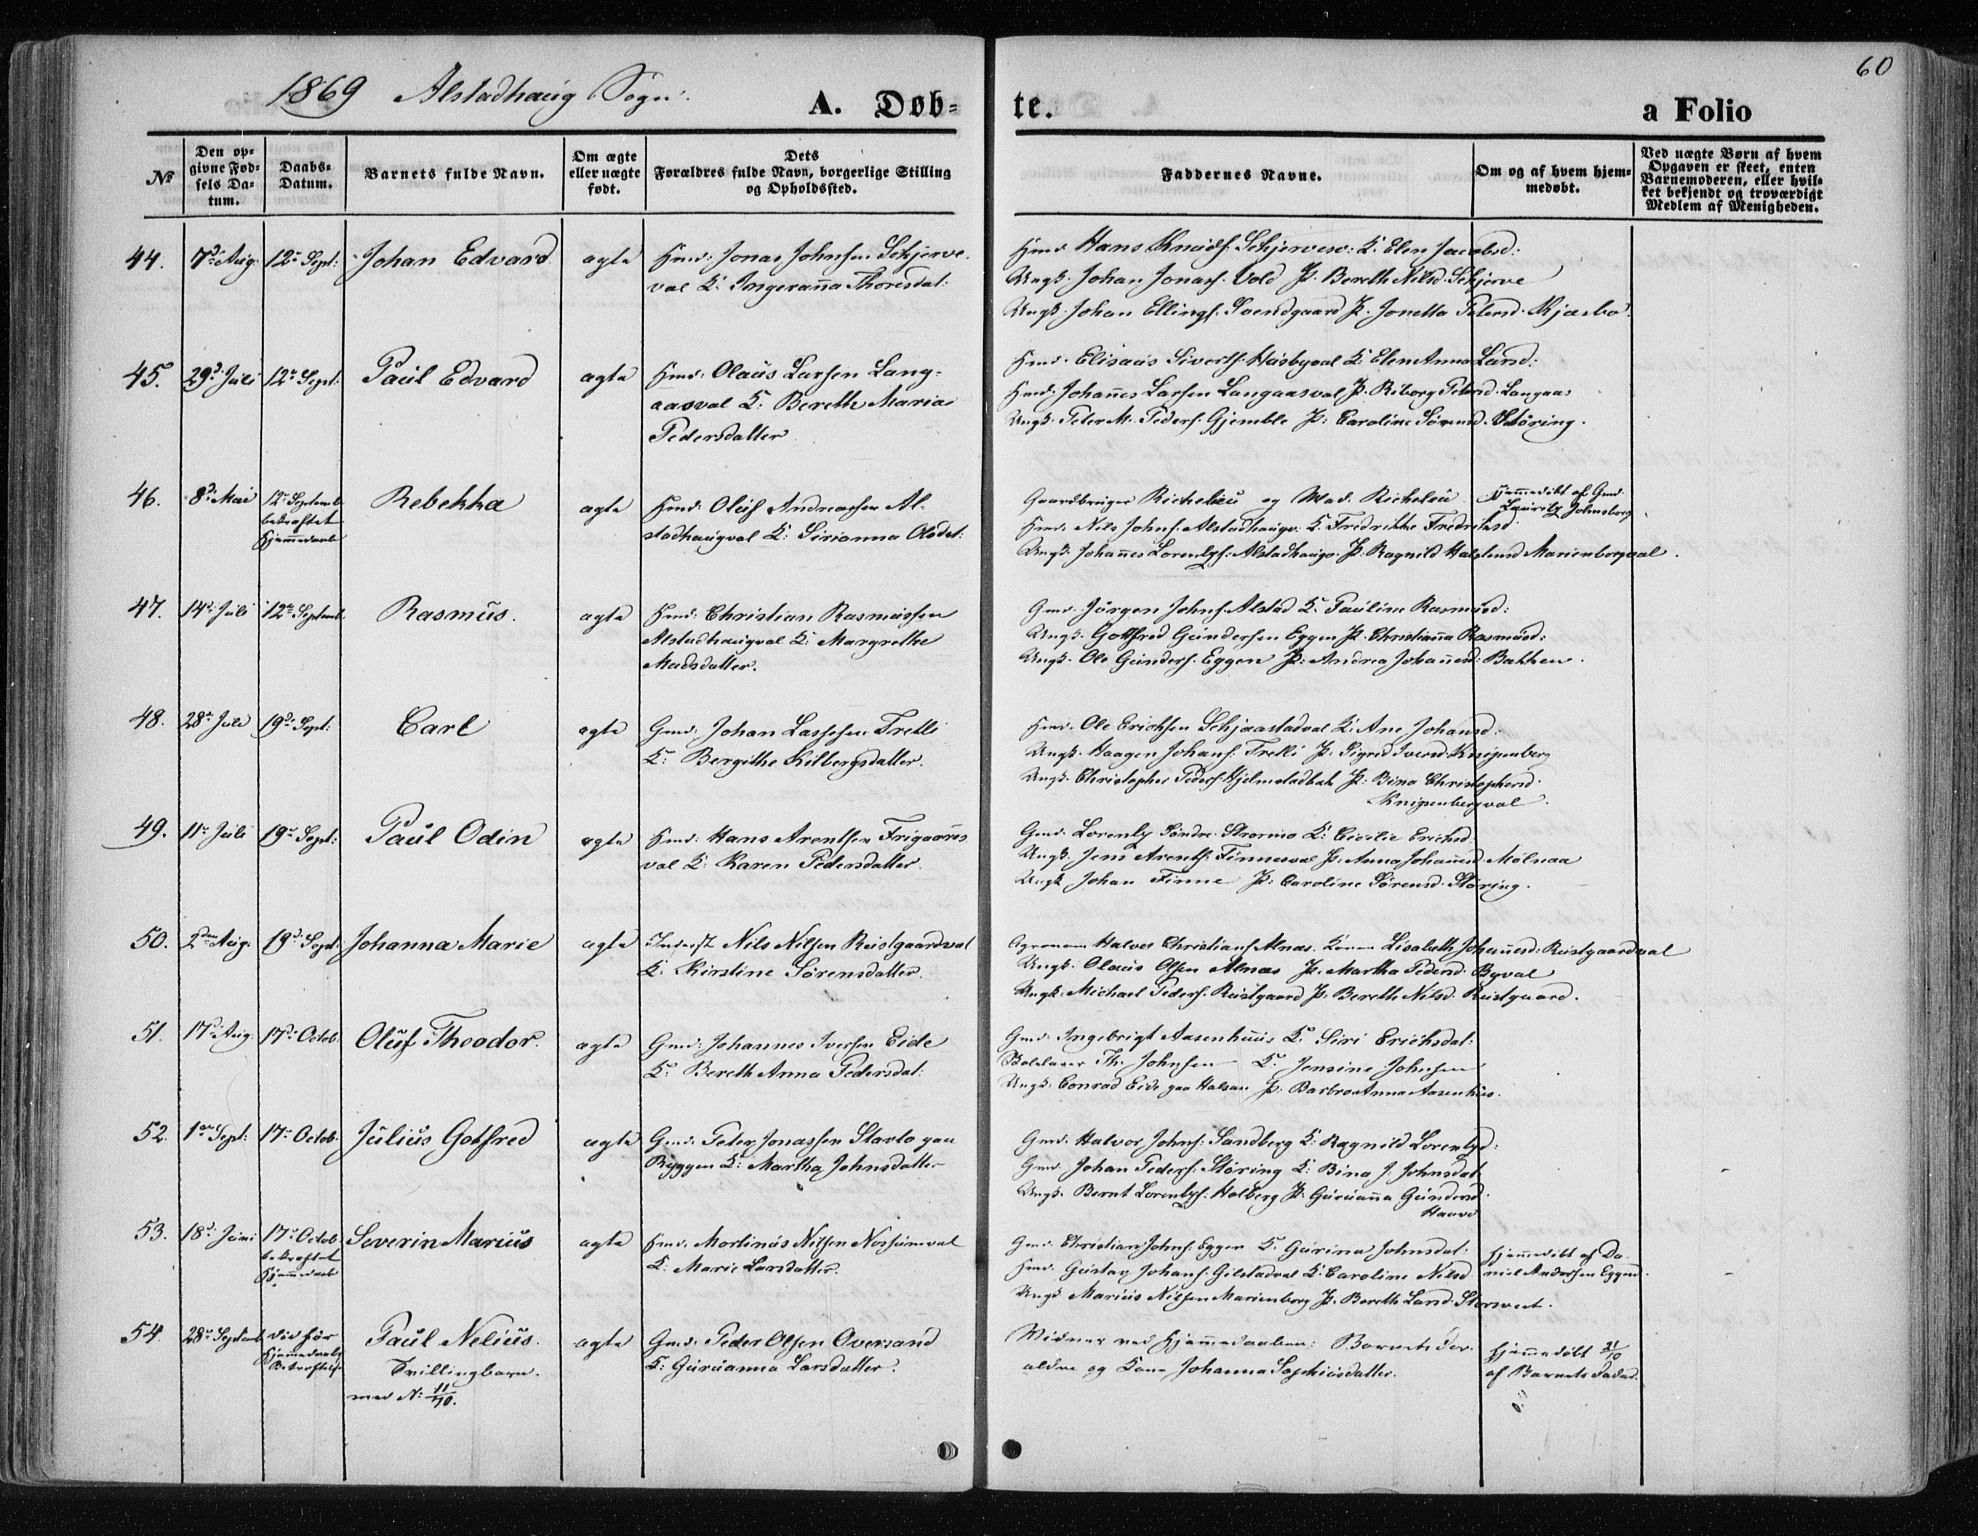 1869 Alstadhaug Sogn.
A. Døb=
te.
a Folio
60
No
Den op=
givne Fød=
sels Da=
tum.
Daabs=
Datum.
Barnets fulde Navn.
Om ægte
eller uægte
født.
Dets
Forældres fulde Navn, borgerlige Stilling
og Opholdssted.
Faddernes Navne.
Om og af hvem hjem=
medøbt.
Ved uægte Børn af hvem
Opgaven er skeet, enten
Barnemoderen, eller hvil=
ket bekjendt og troværdigt
Medlem af Menigheden.
44. 7d Aug. 12te Sept: Johan Edvard ægte Hmd: Jonas Johnsen Schjerve=
val K: Ingeranna Thoresdat:
Hmd. Hans Knuds. Schjervesv: K. Elen Jacobsd:
Ungk. Johan Jonass. Vold P. Bereth Nilsd. Schjerve
Ungk. Johan Ellings. Svendgaard P. Jonetta Petersd.
45. 29d Juli 12te Sept: Paul Edvard ægte Hmd: Olaus Larsen Lang=
aasval K. Bereth Maria
Pedersdatter
Hmd. Elisæus Siverts. Husbyval K. Elen Anna Larsd:
Hmd. Johannes Larsen Langaasval P. Petersd. Langaas
Ungk. Peter M. Peders. Gjemble P: Caroline Sørensd. Støring.
46. 8d Mai 12te Septemb.
bekræftet
Hjemmedaab
Rebekka ægte Hmd: Oluf Andreasen Al=
stadhaugval K: Sirianna Olsdat:
Gaardbruger Richelieu og Mad. Richelieu
Hmd. Nils Johns. Alstadhaugv. K. Fredrikke Fredriksd.
Ungk. Johannes Lorentzs. Alstadhaugv. P. Ragnild Halstensd Marienborgval.
Hjemmedøbt af Gmd.
Lauritz Johnsborg
47. 14d Juli 12te Septemb. Rasmus. ægte Hmd: Christian Rasmussen
Alstadhaugval K: Margrethe
Madsdatter.
Gmd. Jørgen Johns. Alstad K. Pauline Rasmusd:
Ungk. Gottfred Gundersen Eggen P. Christianna Rasmusd:
Ungk. Ole Gunders. Eggen P: Andrea Johannesd: Bakken.
48. 28de Juli 19d Sept: Carl ægte Gmd: Johan Lassesen Tretli
K: Bergithe Kilbergsdatter.
Hmd. Ole Erichsen Schjaastadval K. Ane Johansd:
Ungk. Haagen Johans. Tretli P. Sigrid Iversd. Knipenberg
Ungk. Christopher Peders. P. Bina Christophersd.
Knipenbergval.
49. 11te Juli 19de Sept: Paul Odin ægte Hmd: Hans Arentsen
val K. Karen Pedersdatter.
Gmd. Lorentz Stromo K: Cicilie Erichsd.
Ungk. Jens Arents. Finnesval P. Anna Johannesd. Mølnaa
Ungk Johan Finne P: Caroline Sørensd. Støring.
50. 2den Aug. 19d Sept: Johanna Marie ægte Inderst Nils Nilsen Rustgaardval
K: Kirstine Sørensdatter.
Agronom Halvor Christians. Alnæs. Konen Lisabeth Johannesd: Rustgaardval
Ungk. Olaus Olsen Alnæs P. Martha Pedersd. Byval
Ungk. Michael Peders. Rustgaard P. Bereth Nilsd. Rustgaard.
51. 17d Aug. 17d Octob. Oluf Theodor. ægte Gmd: Johannes Iversen Eide
K. Bereth Anna Pedersdat:
Gmd. Ingebrigt Aasenhuus K. Siri Erichsdat:
Th. Johnsen K. Jensine Johnsen
Ungk. Conrad Eide paa Halsan P. Barbroanna Aasenhus.
52. 1ste Sept: 17de Octob. Julius Gotfred ægte Gmd. Peter Jonassen Starlo paa
Byggen K: Martha Johnsdatter
Gmd. Halvor Johns. Sandberg K: Ragnild Lorentzd:
Gmd. Johan Peders. Støring K: Bina J. Johnsdat
Ungk. Bernt Lorentzs. Holberg P. Guruanna Gundersd.
53. 18d Juni 17de Octob.
bekræftet
Hjemmedaab
Severin Marius ægte Hmd. Martinus Nilsen Norsumval
K. Marie Larsdatter.
Gmd. Christian Johns. Eggen K. Gurina Johnsdat:
Hmd. Gustav Johans. Gilstadval K. Caroline Nilsd.
Ungk Marius Nilsen Marienborg P. Bereth Larsd.
Hjemmedøbt af Da=
niel Andersen Eggen.
54. 28de Septemb. død før
Hjemmedaabs
Bekræftelse
Paul Nelius.
Tvillingbarn.
med N: 11/70.
ægte Gmd: Peder Olsen Oversand
K: Guruanna Larsdatter.
Vidner ved Hjemmedaaben: Barnets For=
ældre og Kone Johanna Sophiusdatter.
Hjemmedøbt 2/10
af Barnets Fader.